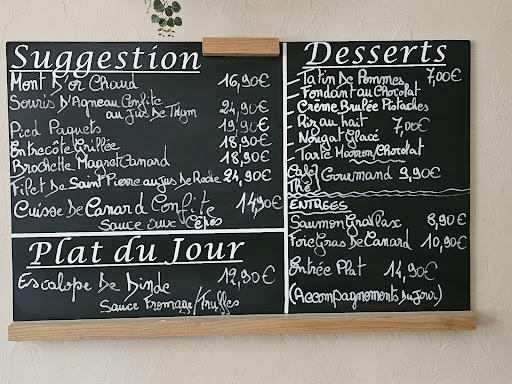 Suggestion
Mont D'or Chaud 16,90€
Souris D'Agneau Confite
au Jus De Thym 24,90€
Pied Paquets 19,90€
Entrecôte Grillée 18,90€
Brochette Magret Canard 18,90€
Filet De Saint Pierre au Jus De Roche 24,90€
Cuisse De Canard Confite 14,90€
Sauce Aux Cèpes
Plat du Jour
Escalope De Dinde 12,90€
Sauce Fromage/Truffes
Desserts
Tatin De Pommes 7,00€
Fondant au Chocolat
Crème Brulée Pistaches
Riz au lait 7,00€
Nougat Glacé
Tarte Marron/Chocolat
Café/
Thé Gourmand 9,90€
ENTREES
Saumon Gravlax 8,90€
Foie Gras De Canard 10,90€
Entrée Plat 14,90€
(Accompagnements Du Jour)